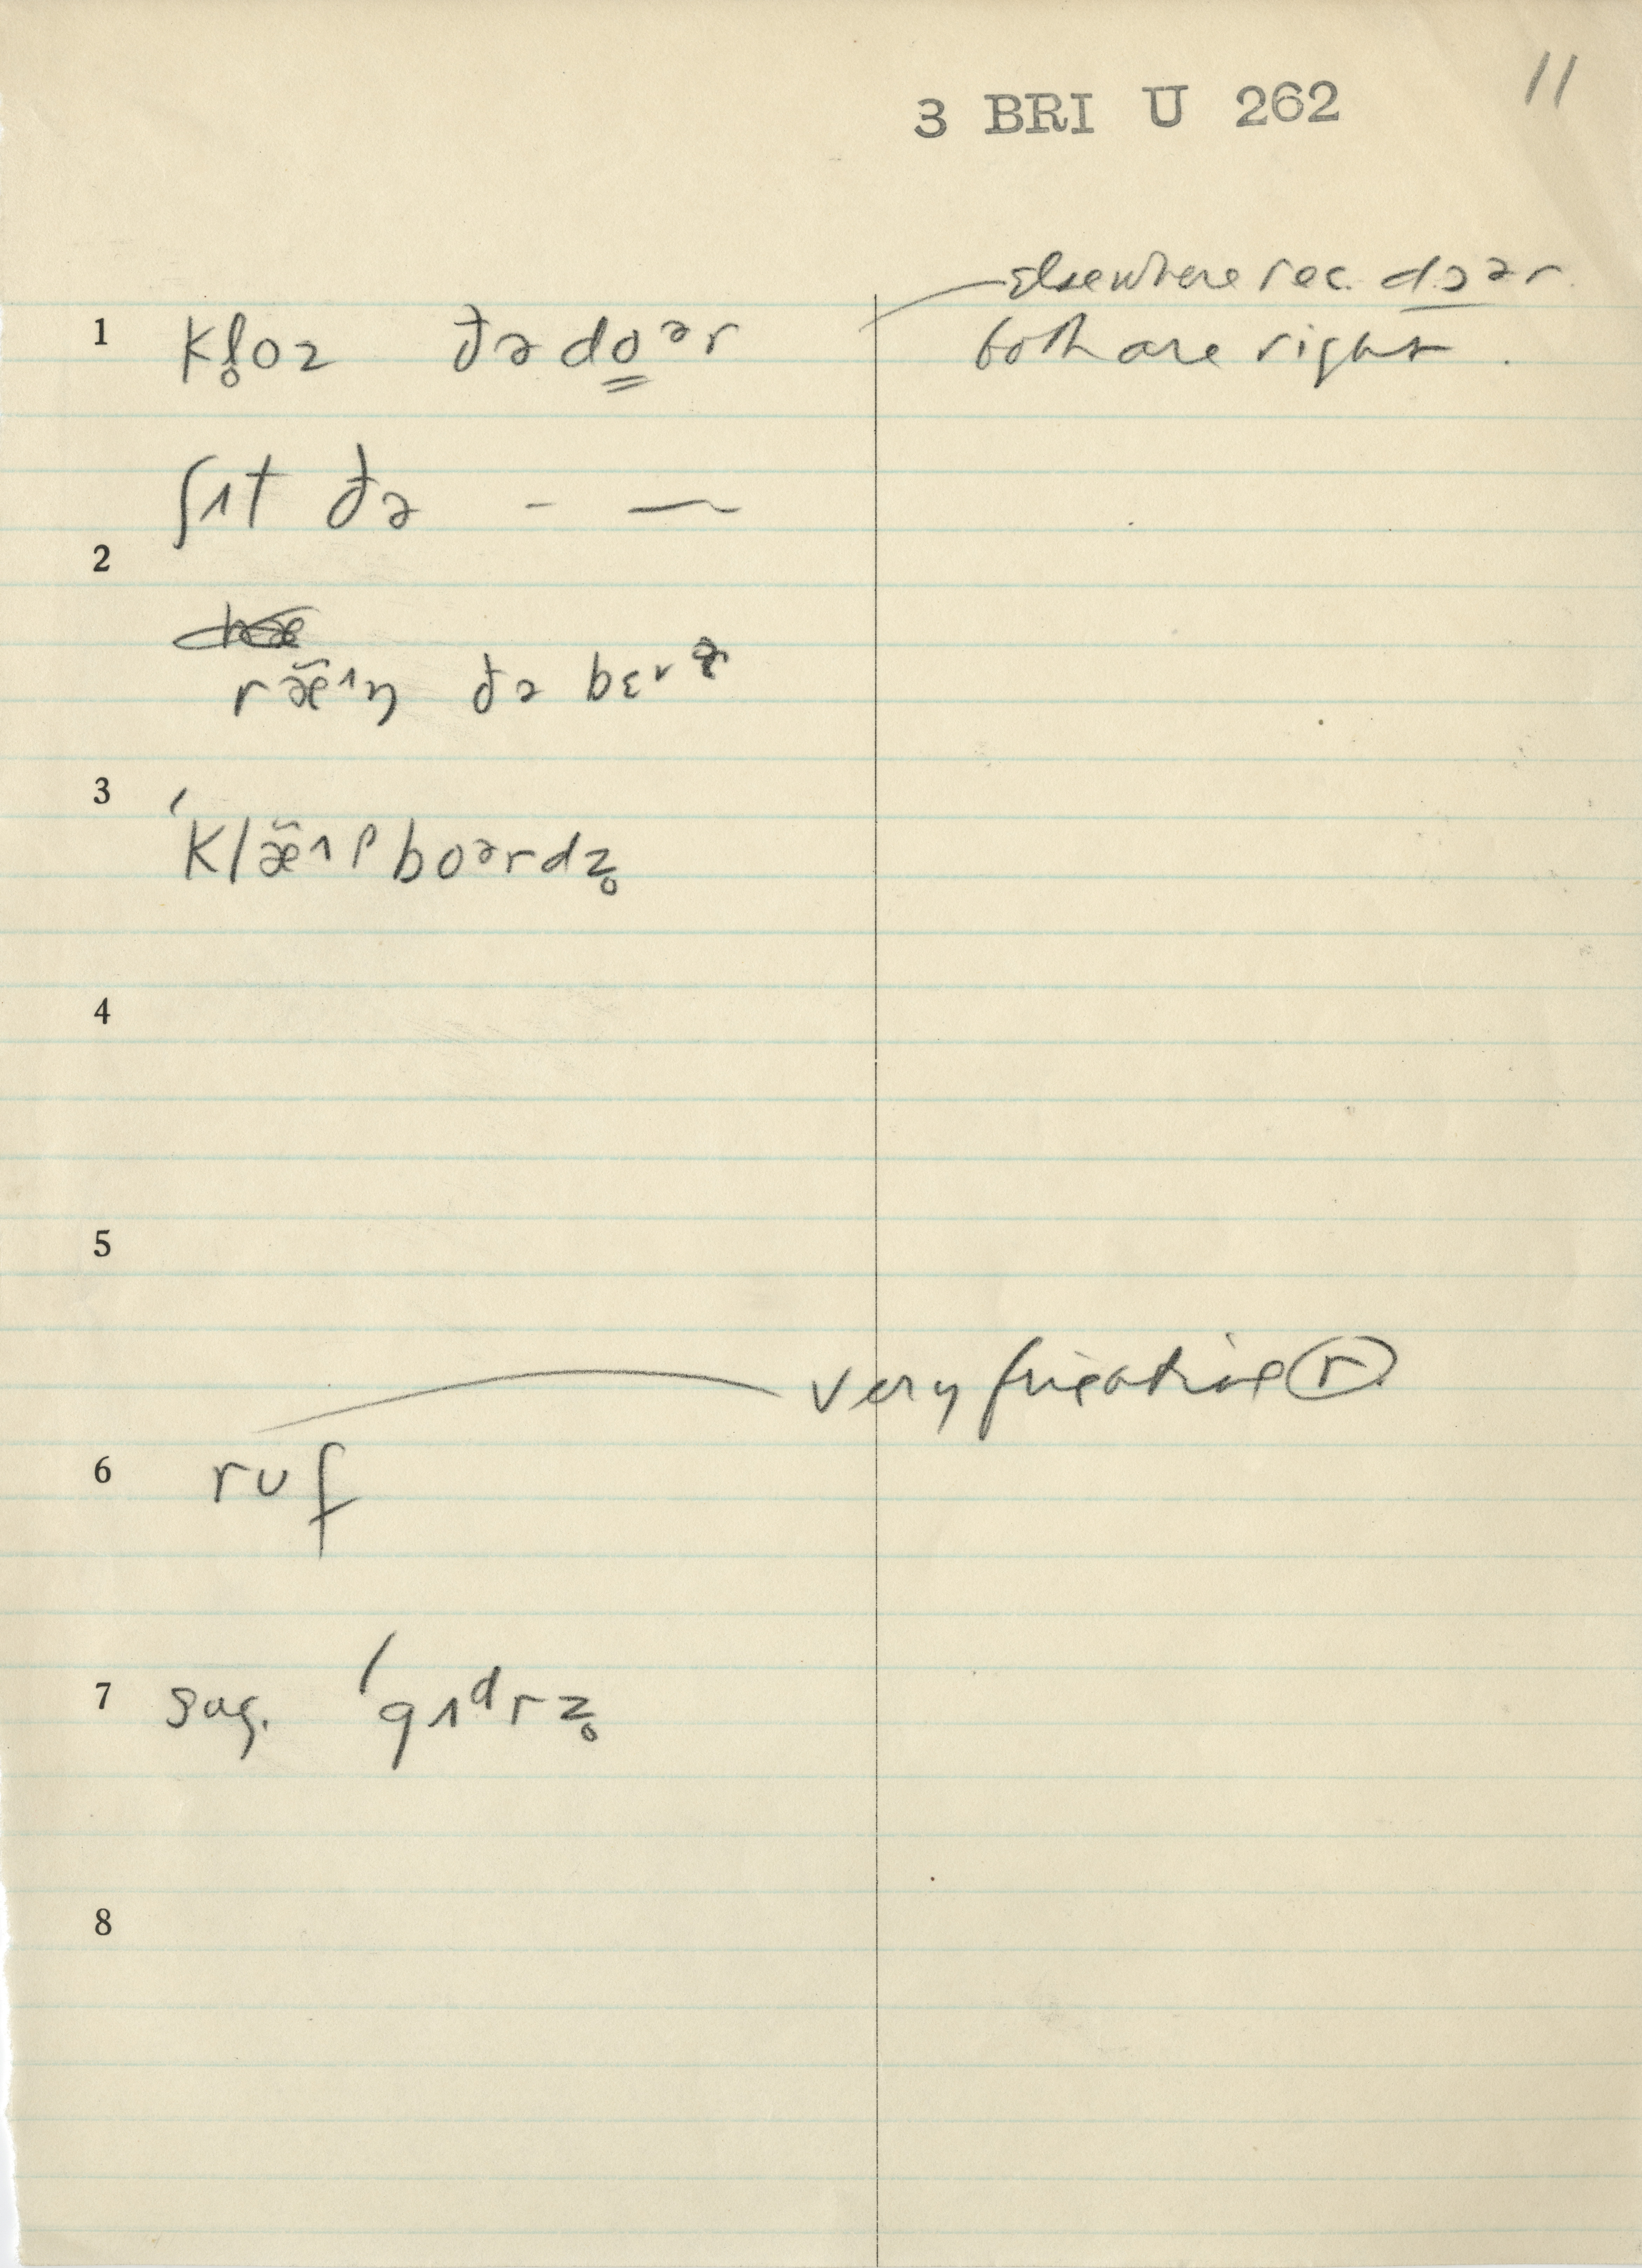 11
3 BRI U 262
Elsewhere rec. dɔᵊr
1 kl̥oz ðə doᵊr both are right.
ʃɪt ðə – —
2
ræ̃ᶦŋ ðə
3
ˈklæ̃ᶦpboᵊrdz̥
4
5
very fricative r
6 rʊf
7 sag. ˈgɪᵈrz̥
8